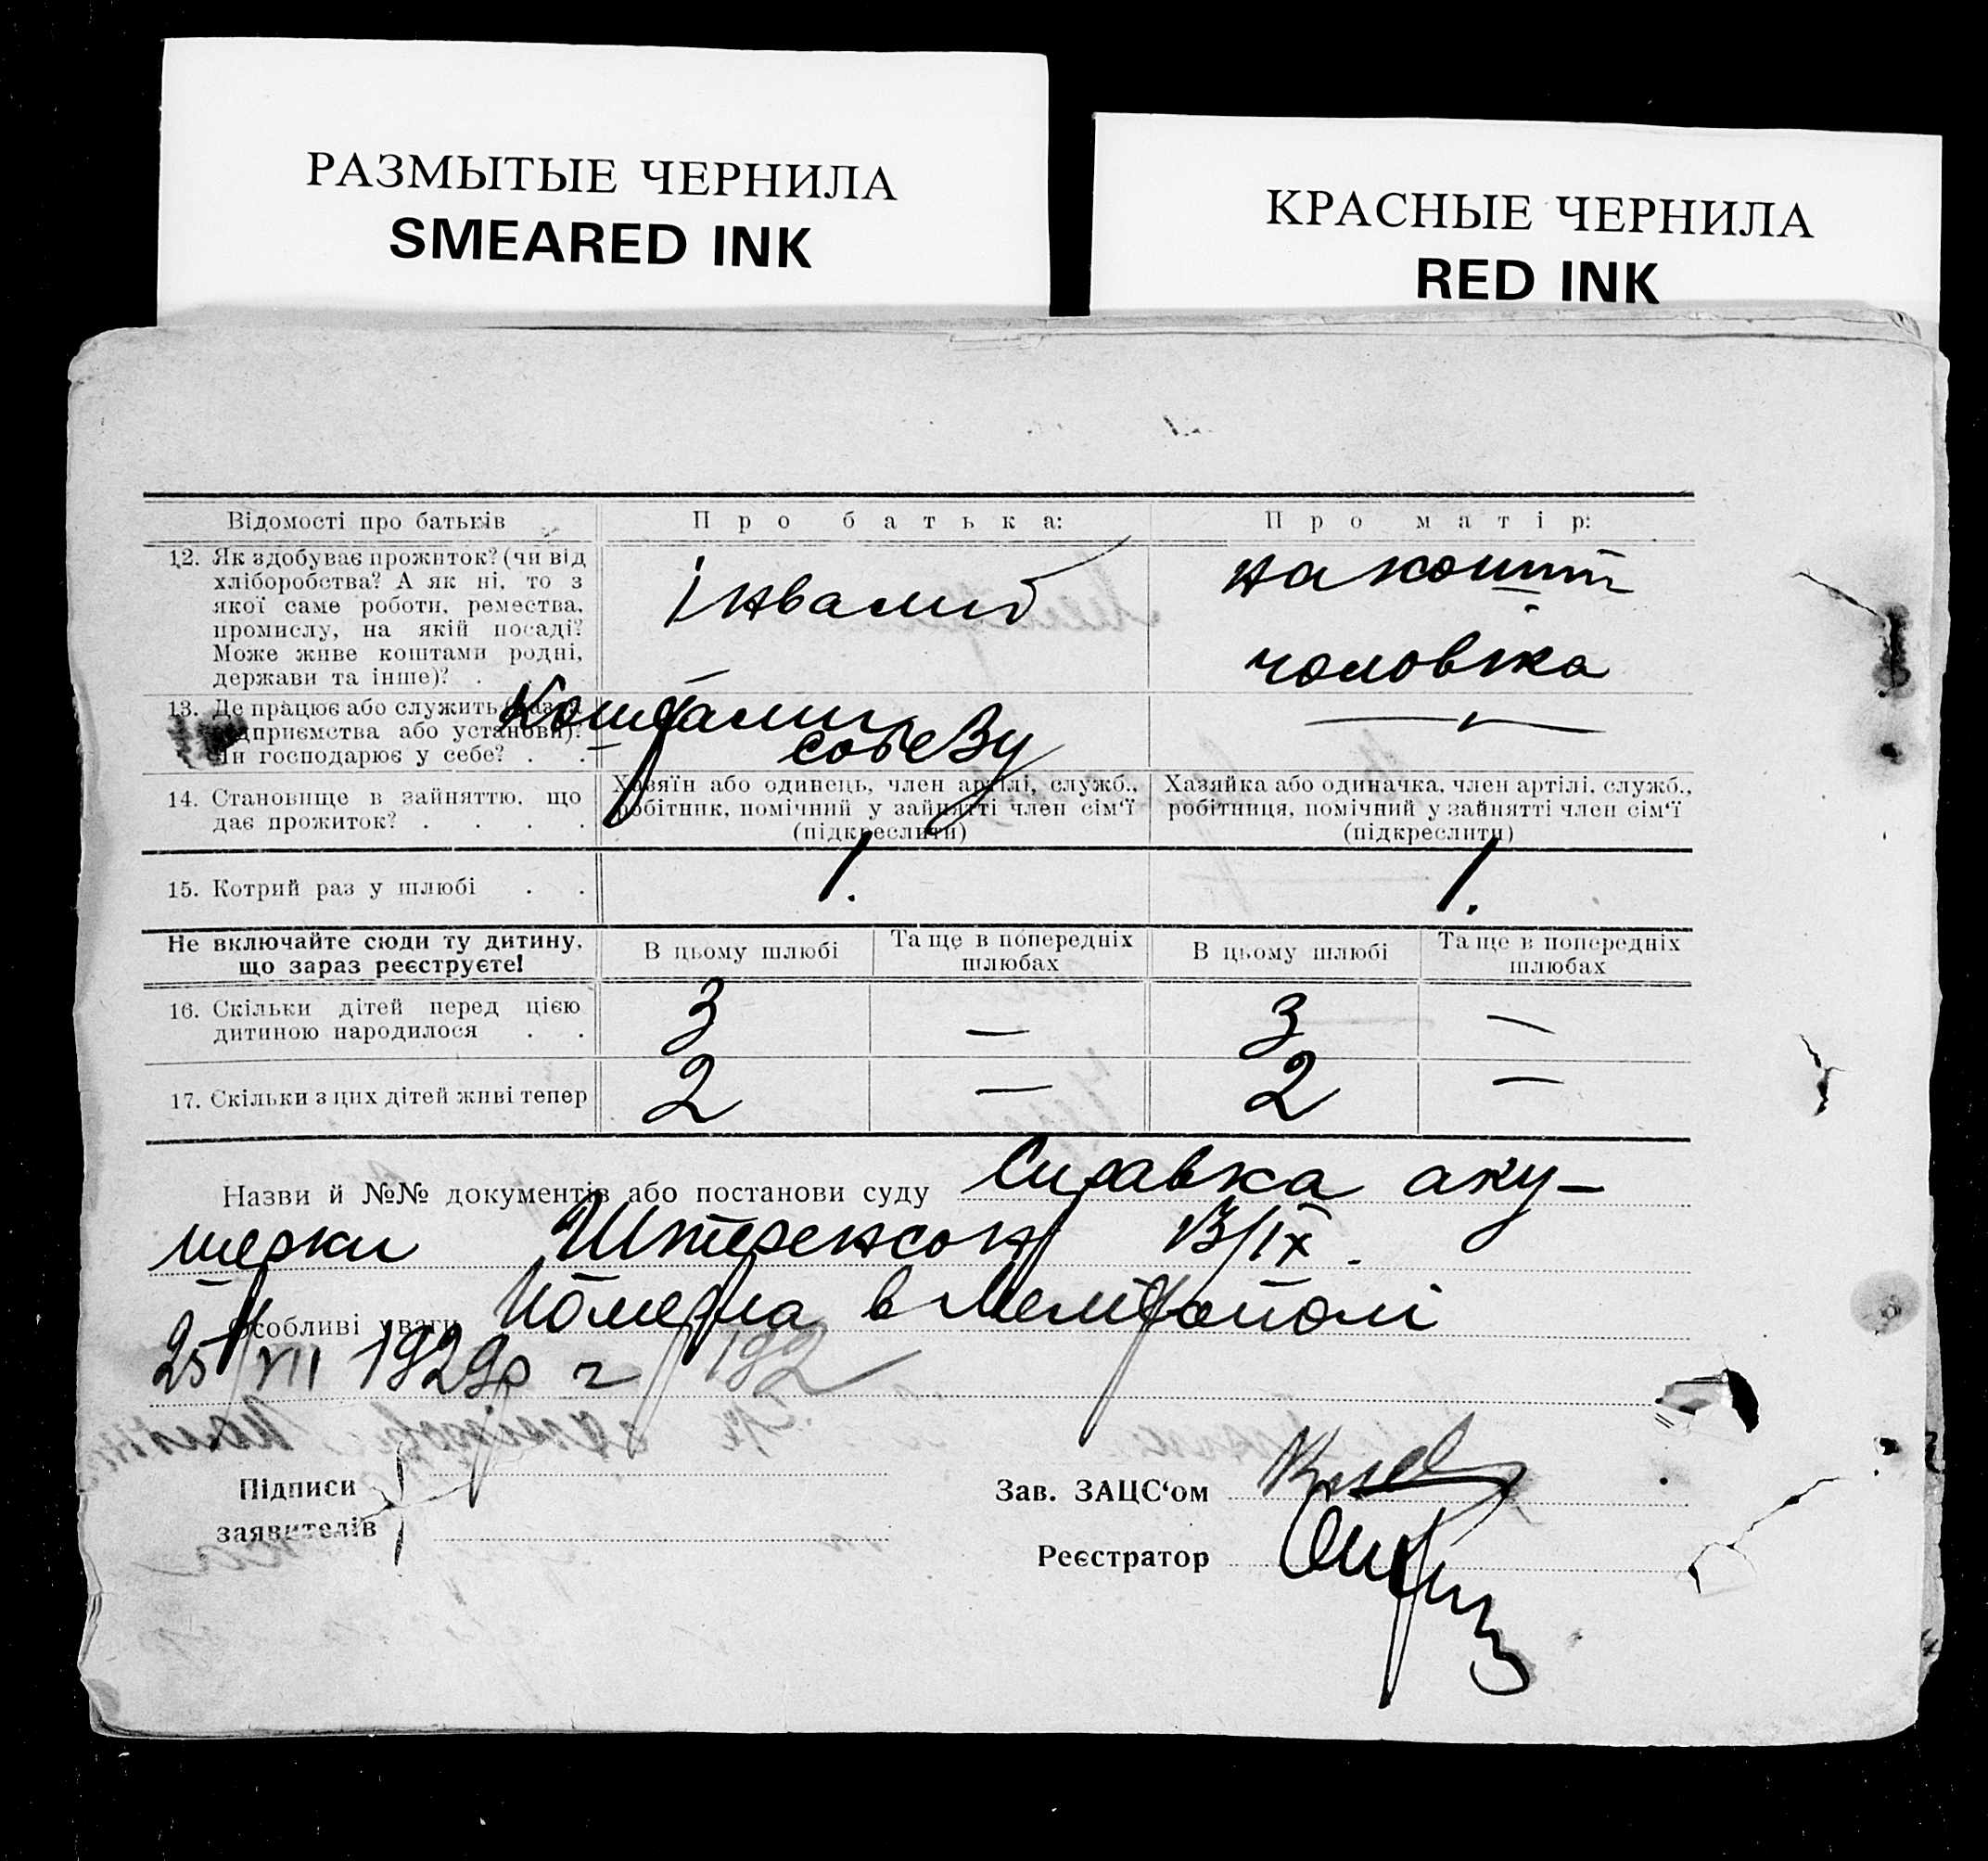 РАЗМЫТЫЕ ЧЕРНИЛА
SMEARED INK
КРАСНЫЕ ЧЕРНИЛА
RED INK
Відомості про батьків
Про батька:
Про матір:
12. Як здобуває прожиток? (чи від
хліборобства? А як ні, то з
якої саме роботи, ремества,
промислу, на якій посаді?
Може живе коштами родні,
держави та інше)? .
інвалид
на кошти
чоловіка
13. Де працює або служить
підприємства або установи).
Чи господарює у себе? . .
Коштами
собезу
—
14. Становище в зайняттю, що
дає прожиток? . . . .
Хазяїн або одинець, член артілі, служб.,
робітник, помічний у зайнятті член сім'ї
(підкреслити)
Хазяйка або одиначка, член артілі, служб.,
робітниця, помічний у зайнятті член сім'ї
(підкреслити)
15. Котрий раз у шлюбі . .
1.
1.
Не включайте сюди ту дитину,
що зараз реєструєте!
В цьому шлюбі
Та ще в попередніх
шлюбах
В цьому шлюбі
Та ще в попередніх
шлюбах
16. Скільки дітей перед цією
дитиною народилося . .
3 — 3 —
17. Скільки з цих дітей живі тепер
2 — 2 —
Назви й №№ документів або постанови суду Справка аку-
шерки 13/IX.
Особливі уваги Померла в Мелітополі
25/VII 1929 р
Підписи
заявителів
Зав. ЗАЦС'ом
Реєстратор